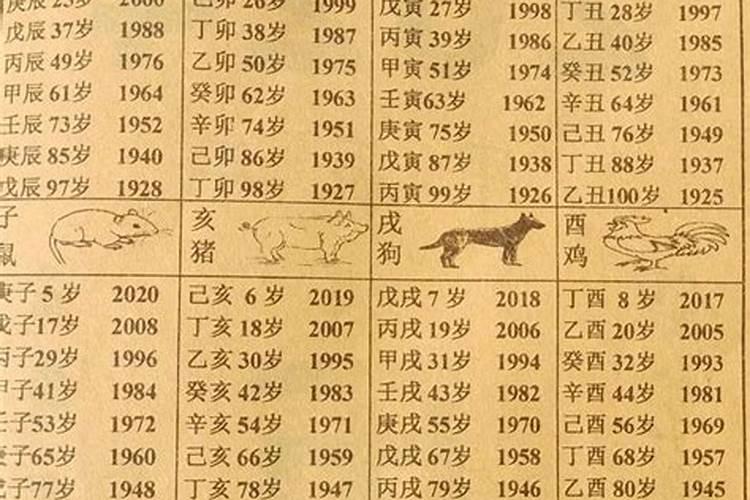 庚辰 25岁 2000 己卯 26岁 1999 戊寅 27岁 1998 丁丑 28岁 1997
戊辰 37岁 1988 丁卯 38岁 1987 丙寅 39岁 1986 乙丑 40岁 1985
丙辰 49岁 1976 乙卯 50岁 1975 甲寅 51岁 1974 癸丑 52岁 1973
甲辰 61岁 1964 癸卯 62岁 1963 壬寅63岁 1962 辛丑 64岁 1961
壬辰 73岁 1952 辛卯 74岁 1951 庚寅 75岁 1950 己丑 76岁 1949
庚辰 85岁 1940 己卯 86岁 1939 戊寅 87岁 1938 丁丑 88岁 1937
戊辰 97岁 1928 丁卯 98岁 1927 丙寅 99岁 1926 乙丑100岁 1925
子 亥 戌 酉
鼠 猪 狗 鸡
庚子 5 岁 2020 己亥 6 岁 2019 戊戌 7 岁 2018 丁酉 8 岁 2017
戊子17岁 2008 丁亥 18岁 2007 丙戌 19岁 2006 乙酉 20岁 2005
丙子29岁 1996 乙亥 30岁 1995 甲戌 31岁 1994 癸酉 32岁 1993
甲子41岁 1984 癸亥 42岁 1983 壬戌 43岁 1982 辛酉 44岁 1981
壬子53岁 1972 辛亥 54岁 1971 庚戌 55岁 1970 己酉 56岁 1969
庚子65岁 1960 己亥 66岁 1959 戊戌 67岁 1958 丁酉 68岁 1957
戊子77岁 1948 丁亥 78岁 1947 丙戌 79岁 1946 乙酉 80岁 1945